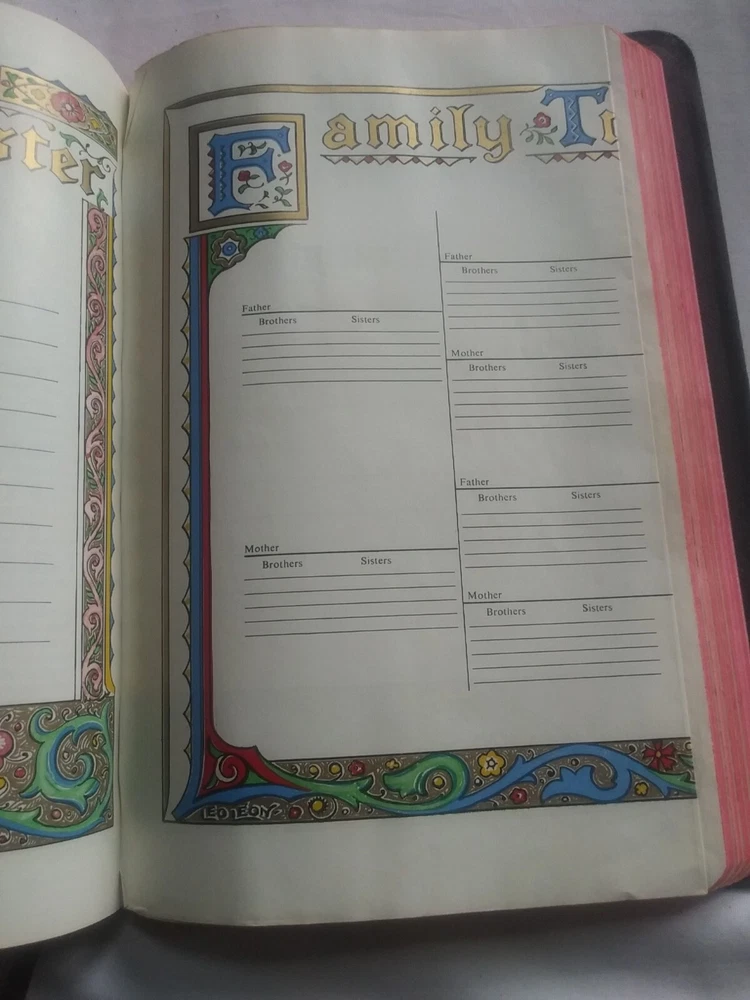 ster
Family Tr
Father
Brothers Sisters
Mother
Brothers Sisters
Father
Brothers Sisters
Mother
Brothers Sisters
Father
Brothers Sisters
Mother
Brothers Sisters